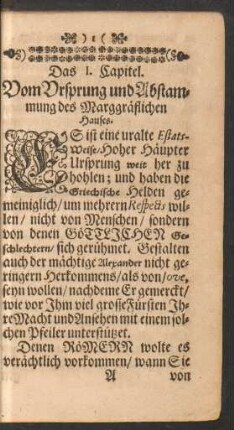 ) 1 (
Das 1. Capitel.
Vom Ursprung und Abstam-
mung des Marggräflichen
Hauses.
ES ist eine uralte Estats-
Weise / Hoher Häupter
Ursprung weit her zu
hohlen; und haben die
Griechische Helden ge-
meiniglich / um mehrern Respects wil-
len / nicht von Menschen / sondern
von denen GöTTLICHEN Ge-
schlechtern / sich gerühmet. Gestalten
auch der mächtige Alexander nicht ge-
ringern Herkommens / als von / ove,
seyn wollen / nachdeme Er gemerckt /
wie vor Ihm viel grosse Fürsten Ih-
re Macht und Ansehen mit einem sol-
chen Pfeiler unterstützet.
Denen RöMERN wolte es
verächtlich vorkommen / wann Sie
A von